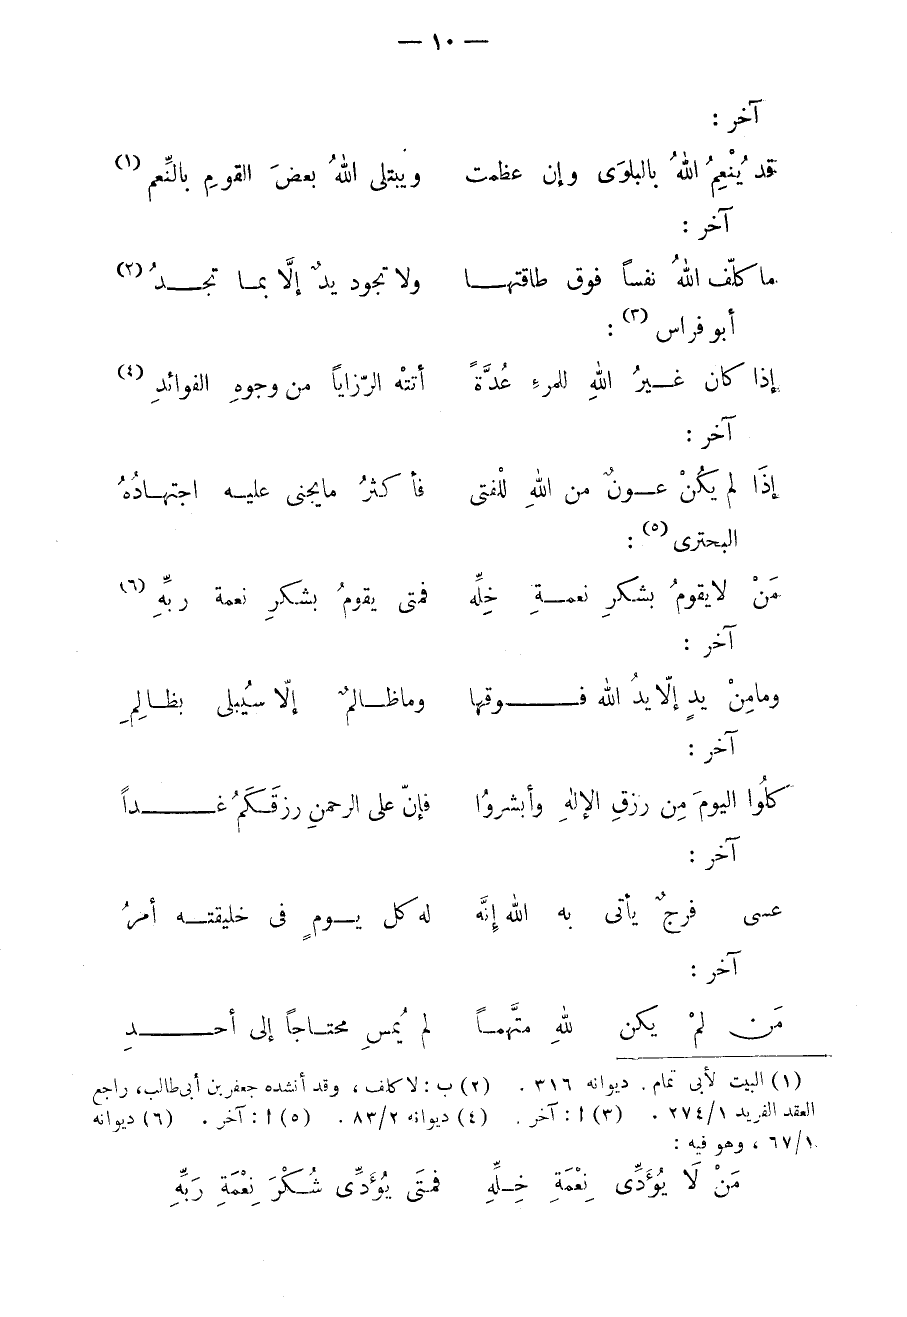 — ١٠ —
آخر :
قد يُنْعِمُ اللهُ بالبلوَى وإن عظمت ويبتلى اللهُ بعضَ القومِ بالنِّعم (١)
آخر :
ما كلّف اللهُ نفساً فوق طاقتها ولا تجود يدٌ إلَّا بما تجدُ (٢)
أبو فراس (٣) :
إذا كان غيرُ اللهِ للمرءِ عُدَّةً أتتْه الرّزاياً من وجوهِ الفوائدِ (٤)
آخر :
إذَا لم يكُنْ عونٌ من اللهِ للْفتى فأكثرُ مايجنى عليه اجتهادُهُ
البحترى (٥) :
مَنْ لايقومُ بشكرِ نعمةِ خِلِّه فمتى يقومُ بشكرِ نعمة ربِّهِ (٦)
آخر :
ومامِنْ يدٍ إلّا يدُ الله فوقها وماظالمٌ إلّا سيُبلى بظالِمِ
آخر :
كلُوا اليومَ مِن رزقِ الإلهِ وأبشروُا فإنّ على الرحمنِ رزقَكَمُ غداً
آخر :
عسى فرجٌ يأتى به اللهُ إنَّه له كل يومٍ فى خليقته أمرُ
آخر :
مَن لمْ يكن للهِ متَّهماً لم يُمسِ محتاجاً إلى أحدِ
(١) البيت لأبى تمام . ديوانه ٣١٦ . (٢) ب : لا كلف ، وقد أنشده جعفر بن أبى طالب، راجع
العقد الفريد ٢٧٤/١ . (٣) ا : آخر . (٤) ديوانه ٨٣/٢ . (٥) ا : آخر . (٦) ديوانه
٦٧/١ ، وهو فيه :
مَنْ لَا يُؤَدِّى نِعْمَةِ خِلِّهِ فمتَى يُؤدِّى شُكْرَ نِعْمَةِ رَبِّهِ